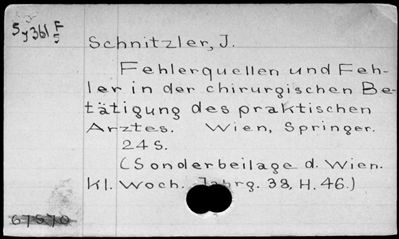 Sy361 F
5
Schnitzler, J.
Fehlerquellen und Feh-
ler in der chirurgischen Be-
tätigung des praktischen
Arztes. Wien, Springer.
24 S.
(Sonderbeilage d. Wien.
Kl. Woch. Jahrg. 38, H. 46.)
67570